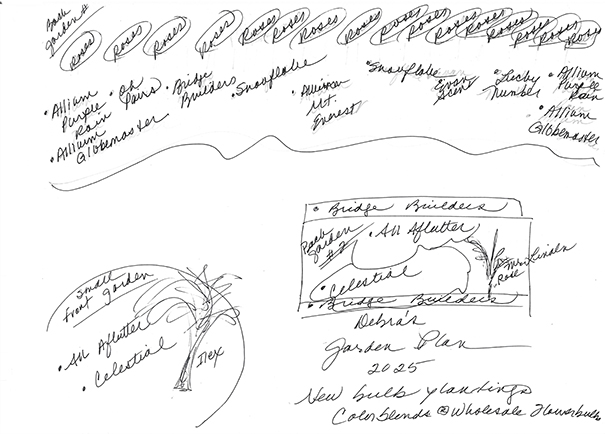 Back
Garden #1
Roses Roses Roses Roses Roses Roses Roses Roses Roses Roses Roses Roses Roses Roses Roses
• Allium
Purple
Rain
• Allium
Globemaster
• Oh
Pairs
• Bridge
Builders
• Snowflake
• Allium
Mt.
Everest
• Snowflake
• Lucky
Number
• Allium
Purple
Rain
• Allium
Globemaster
• Bridge Builders
Back
Garden
#2
• All Aflutter
• Celestial
Linden
Rose
• Bridge Builders
Small
Front Garden
• All Aflutter
• Celestial
Ilex
Debra's
Garden Plan
2025
New bulb plantings
Colorblends @ Wholesale Flowerbulb